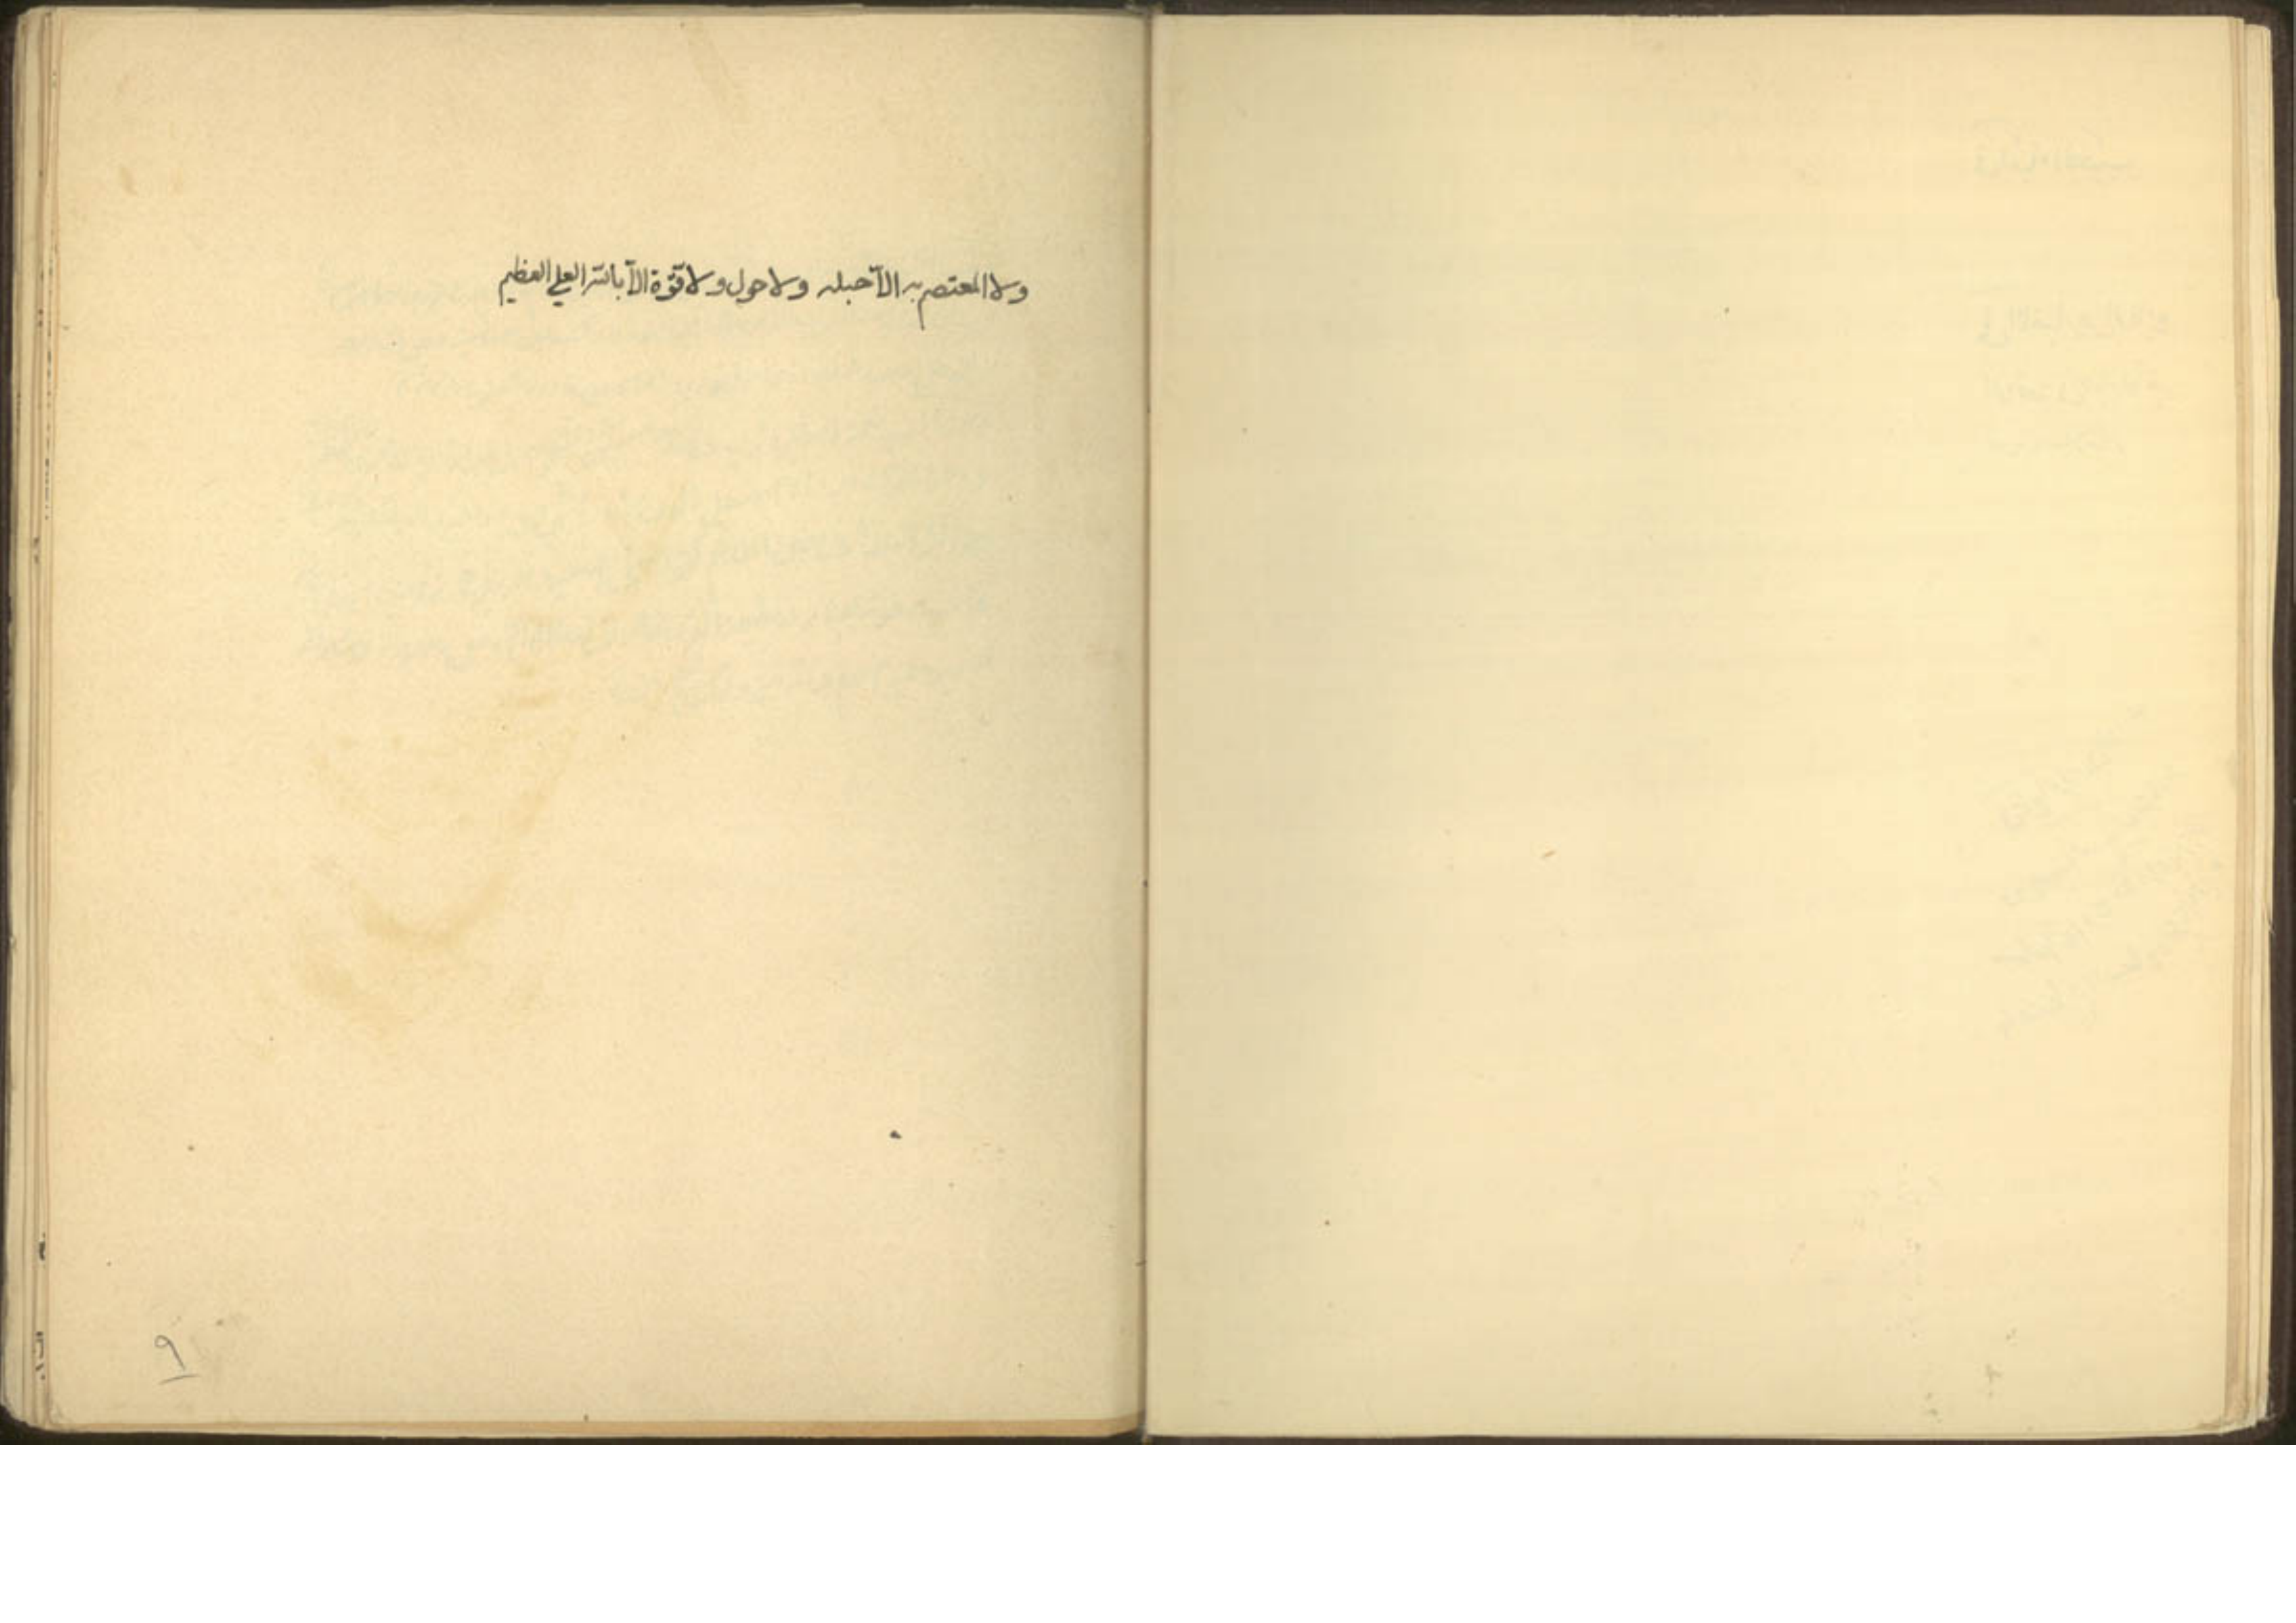 ولا المعتصم به الّا حبله ولا حول ولا قوّة الّا بالله العلي العظيم
٩